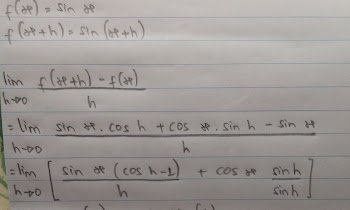 f(x) = sin x
f(x+h) = sin(x+h)
lim h→0 f(x+h) - f(x) / h
= lim h→0 sin x . cos h + cos x . sin h - sin x / h
= lim h→0 [ sin x (cos h - 1) / h + cos x sin h / sin h ]